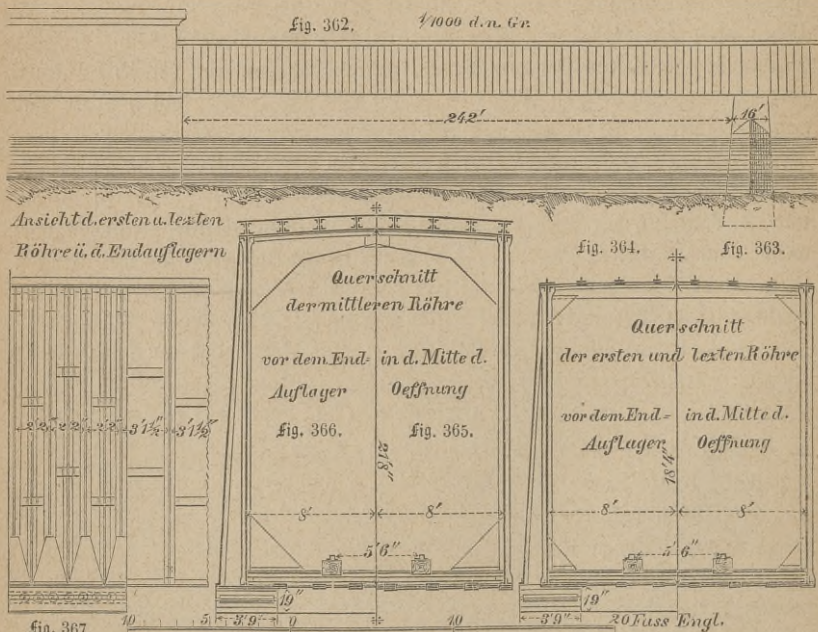 Fig. 362.
1/1000 d. n. Gr.
242'
16'
Ansicht d. ersten u. lezten
Röhre ü. d. Endauflagern
Fig. 364.
Fig. 363.
Querschnitt
der mittleren Röhre
vor dem End-
Auflager
Fig. 366.
in d. Mitte d.
Oeffnung
Fig. 365.
21'8"
8'
8'
5'6"
19"
3'9"
Querschnitt
der ersten und lezten Röhre
vor dem End=
Auflager
in d. Mitte d.
Oeffnung
8'
8'
5' 6"
19"
3'9"
2' 2" 2' 2" 2' 2"
3'1½"
3'1½"
Fig. 367
10
5
0
10
20 Fuss Engl.